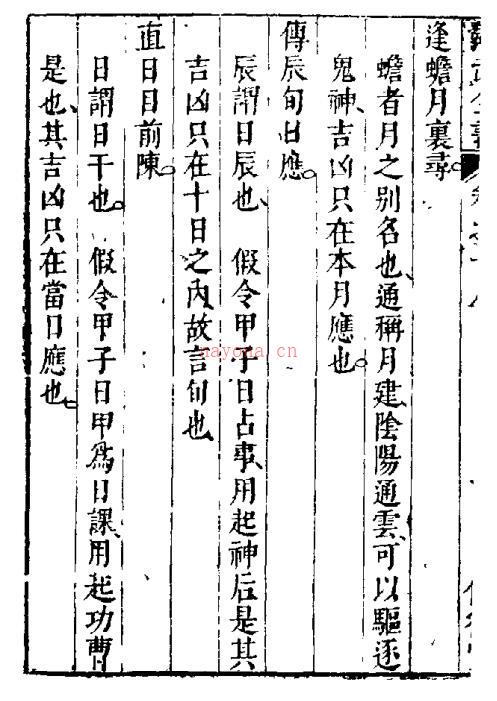 逢蟾月裏尋。
蟾者月之别名也、通稱月建、陰陽通雲、可以驅逐
鬼神、吉凶只在本月應也。
傳辰旬日應。
辰謂日辰也、假令甲子日占事、用起神后是其
吉凶只在十日之内、故言旬也、
直日目前陳。
日謂日干也。假令甲子日甲爲日課、用起功曹
是也、其吉凶只在當日應也。
nayona.cn